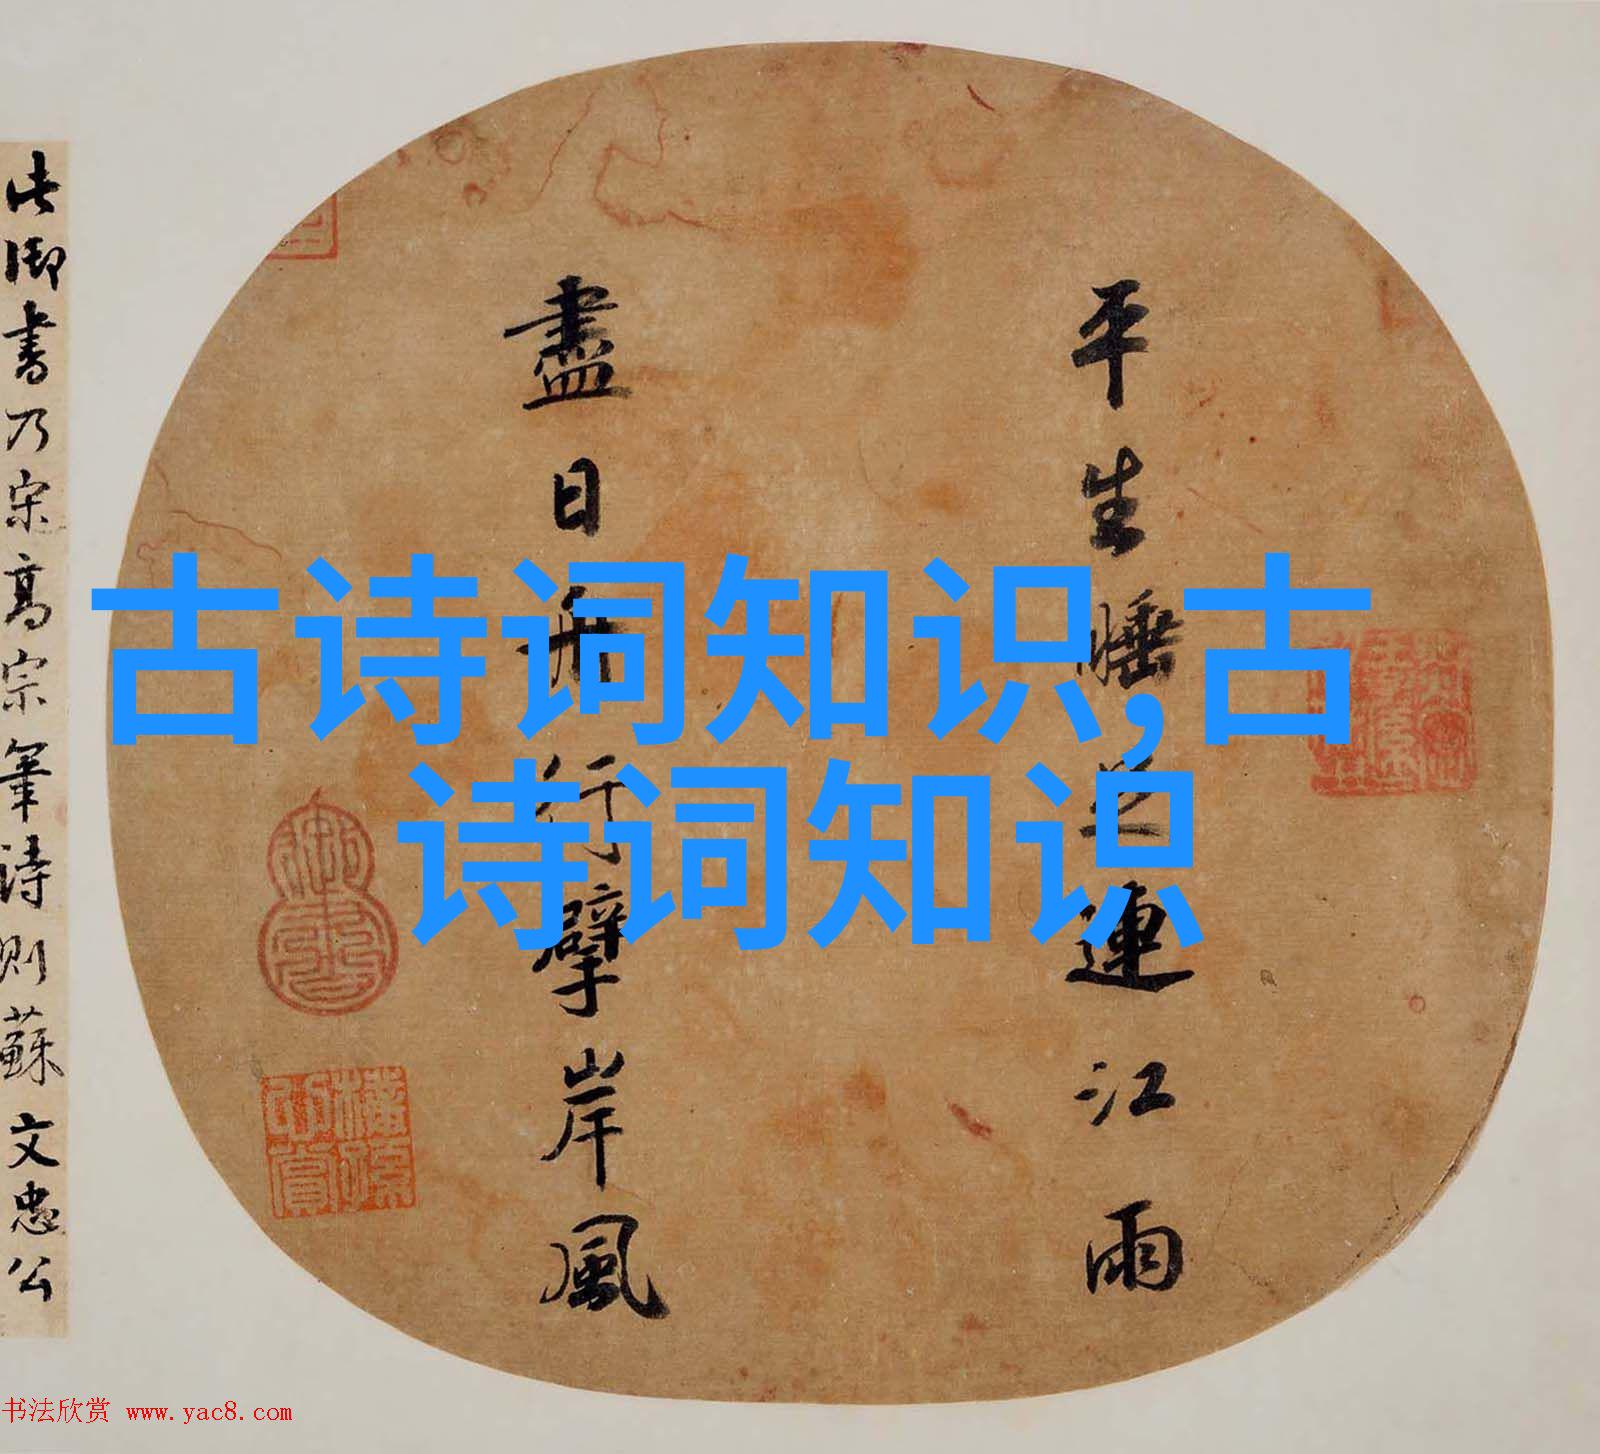 平生睡足連江雨
盡日舟行擘岸風
此御書乃宋高宗筆詩則蘇文忠公
古诗词知识,古
诗词知识
御書
书法欣赏 www.yac8.com